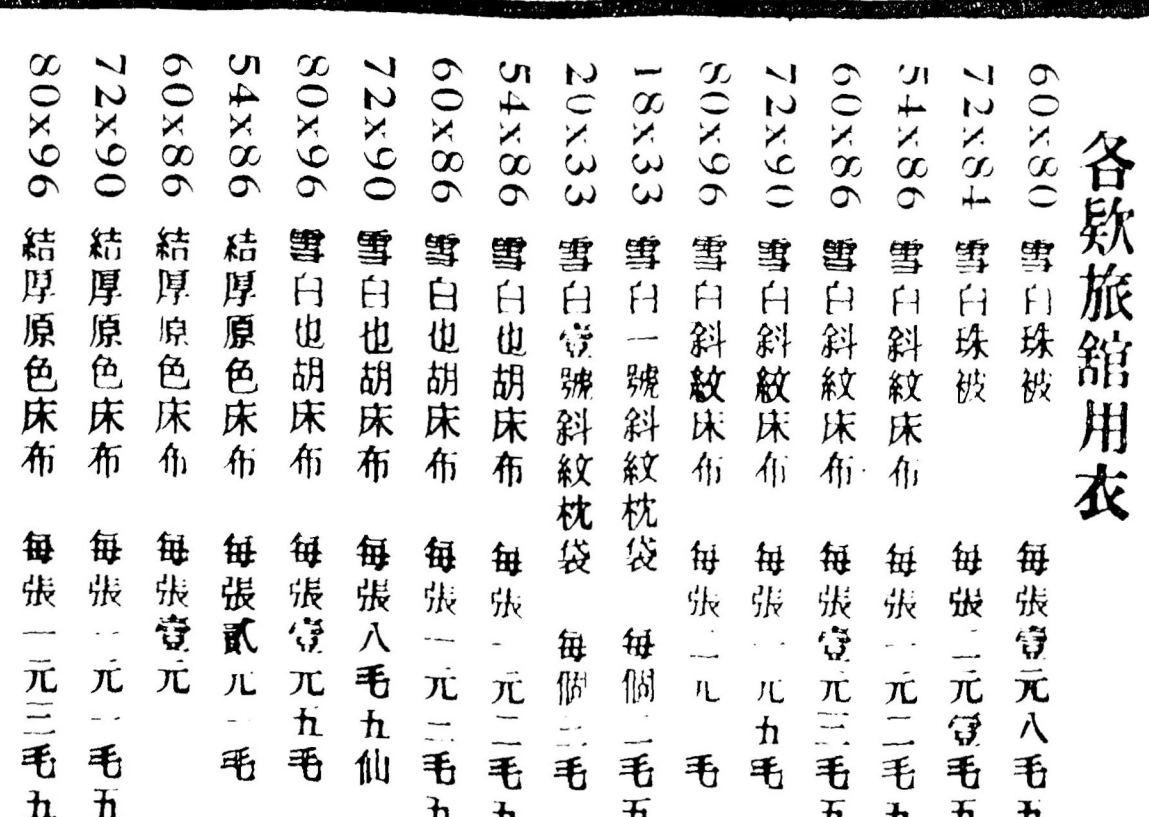 各欵旅舘用衣
60x80 雪白珠被 每張壹元八毛五
72x84 雪白珠被 每張二元壹毛五
54x86 雪白斜紋床布 每張一元二毛九
60x86 雪白斜紋床布 每張壹元三毛五
72x90 雪白斜紋床布 每張一元九毛
80x96 雪白斜紋床布 每張二元 毛
18x33 雪白一號斜紋枕袋 每個二毛五
20x33 雪白壹號斜紋枕袋 每個三毛
54x86 雪白也胡床布 每張一元二毛九
60x86 雪白也胡床布 每張一元二毛九
72x90 雪白也胡床布 每張八毛九仙
80x96 雪白也胡床布 每張壹元五毛
54x86 結厚原色床布 每張貳元一毛
60x86 結厚原色床布 每張壹元
72x90 結厚原色床布 每張一元一毛五
80x96 結厚原色床布 每張一元三毛九